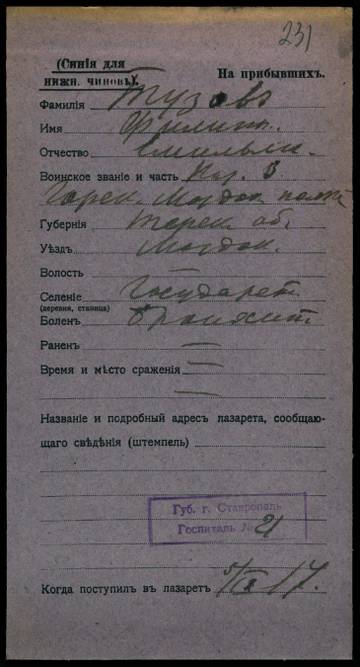 231
(Синія для
нижн. чиновъ).
На прибывшихъ.
Фамилія Тузовъ
Имя Филипъ.
Отчество Емельян.
Воинское званіе и часть Каз. 3
Терек.
Губернія Терек. об.
Уѣздъ Моздок.
Волость —
Селеніе Государст.
(деревня, станица)
Боленъ бронхит
Раненъ —
Время и мѣсто сраженія —
—
Названіе и подробный адресъ лазарета, сообщаю-
щаго свѣдѣнія (штемпель)
Губ. г. Ставрополь
Госпиталь № 21
Когда поступилъ въ лазаретъ 5/II 17.